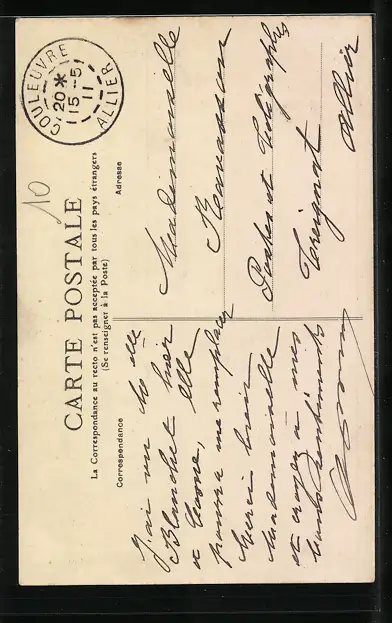 COULEUVRE
20 *
15 -5
11
ALLIER
10
CARTE POSTALE
La Correspondance au recto n'est pas acceptée par tous les pays étrangers
(Se renseigner à la Poste)
Correspondance
Adresse
J'ai vu M elle
Blanchet hier
Elle
pourra me remplacer
Merci bien
Mademoiselle
et croyez à mes
bons sentiments
Mademoiselle
Postes et Télégraphes
Treignat
Allier